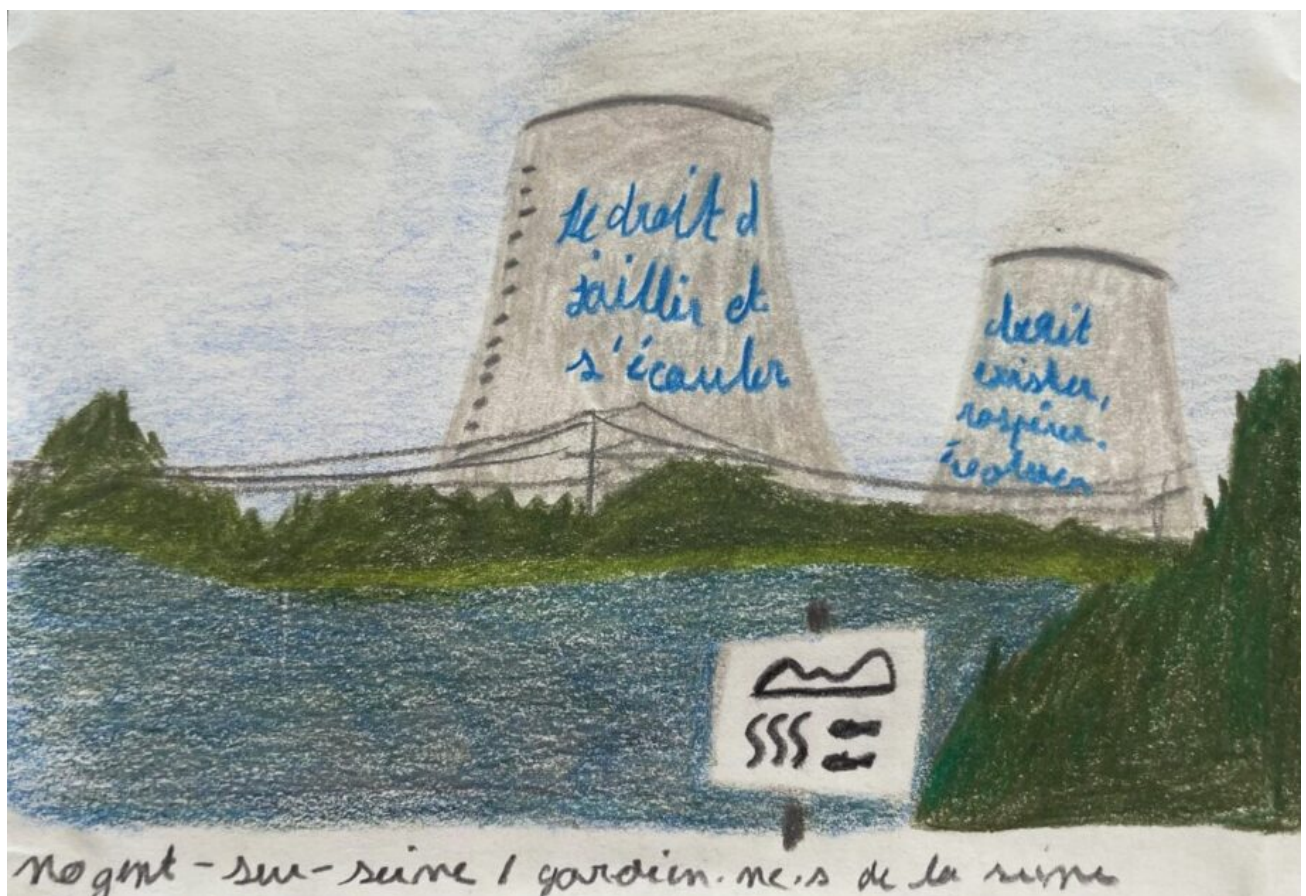 Le droit d
jaillir et
s'écouler
droit
exister,
respirer.
évoluer
nogent-sur-seine / gardien.ne.s de la seine